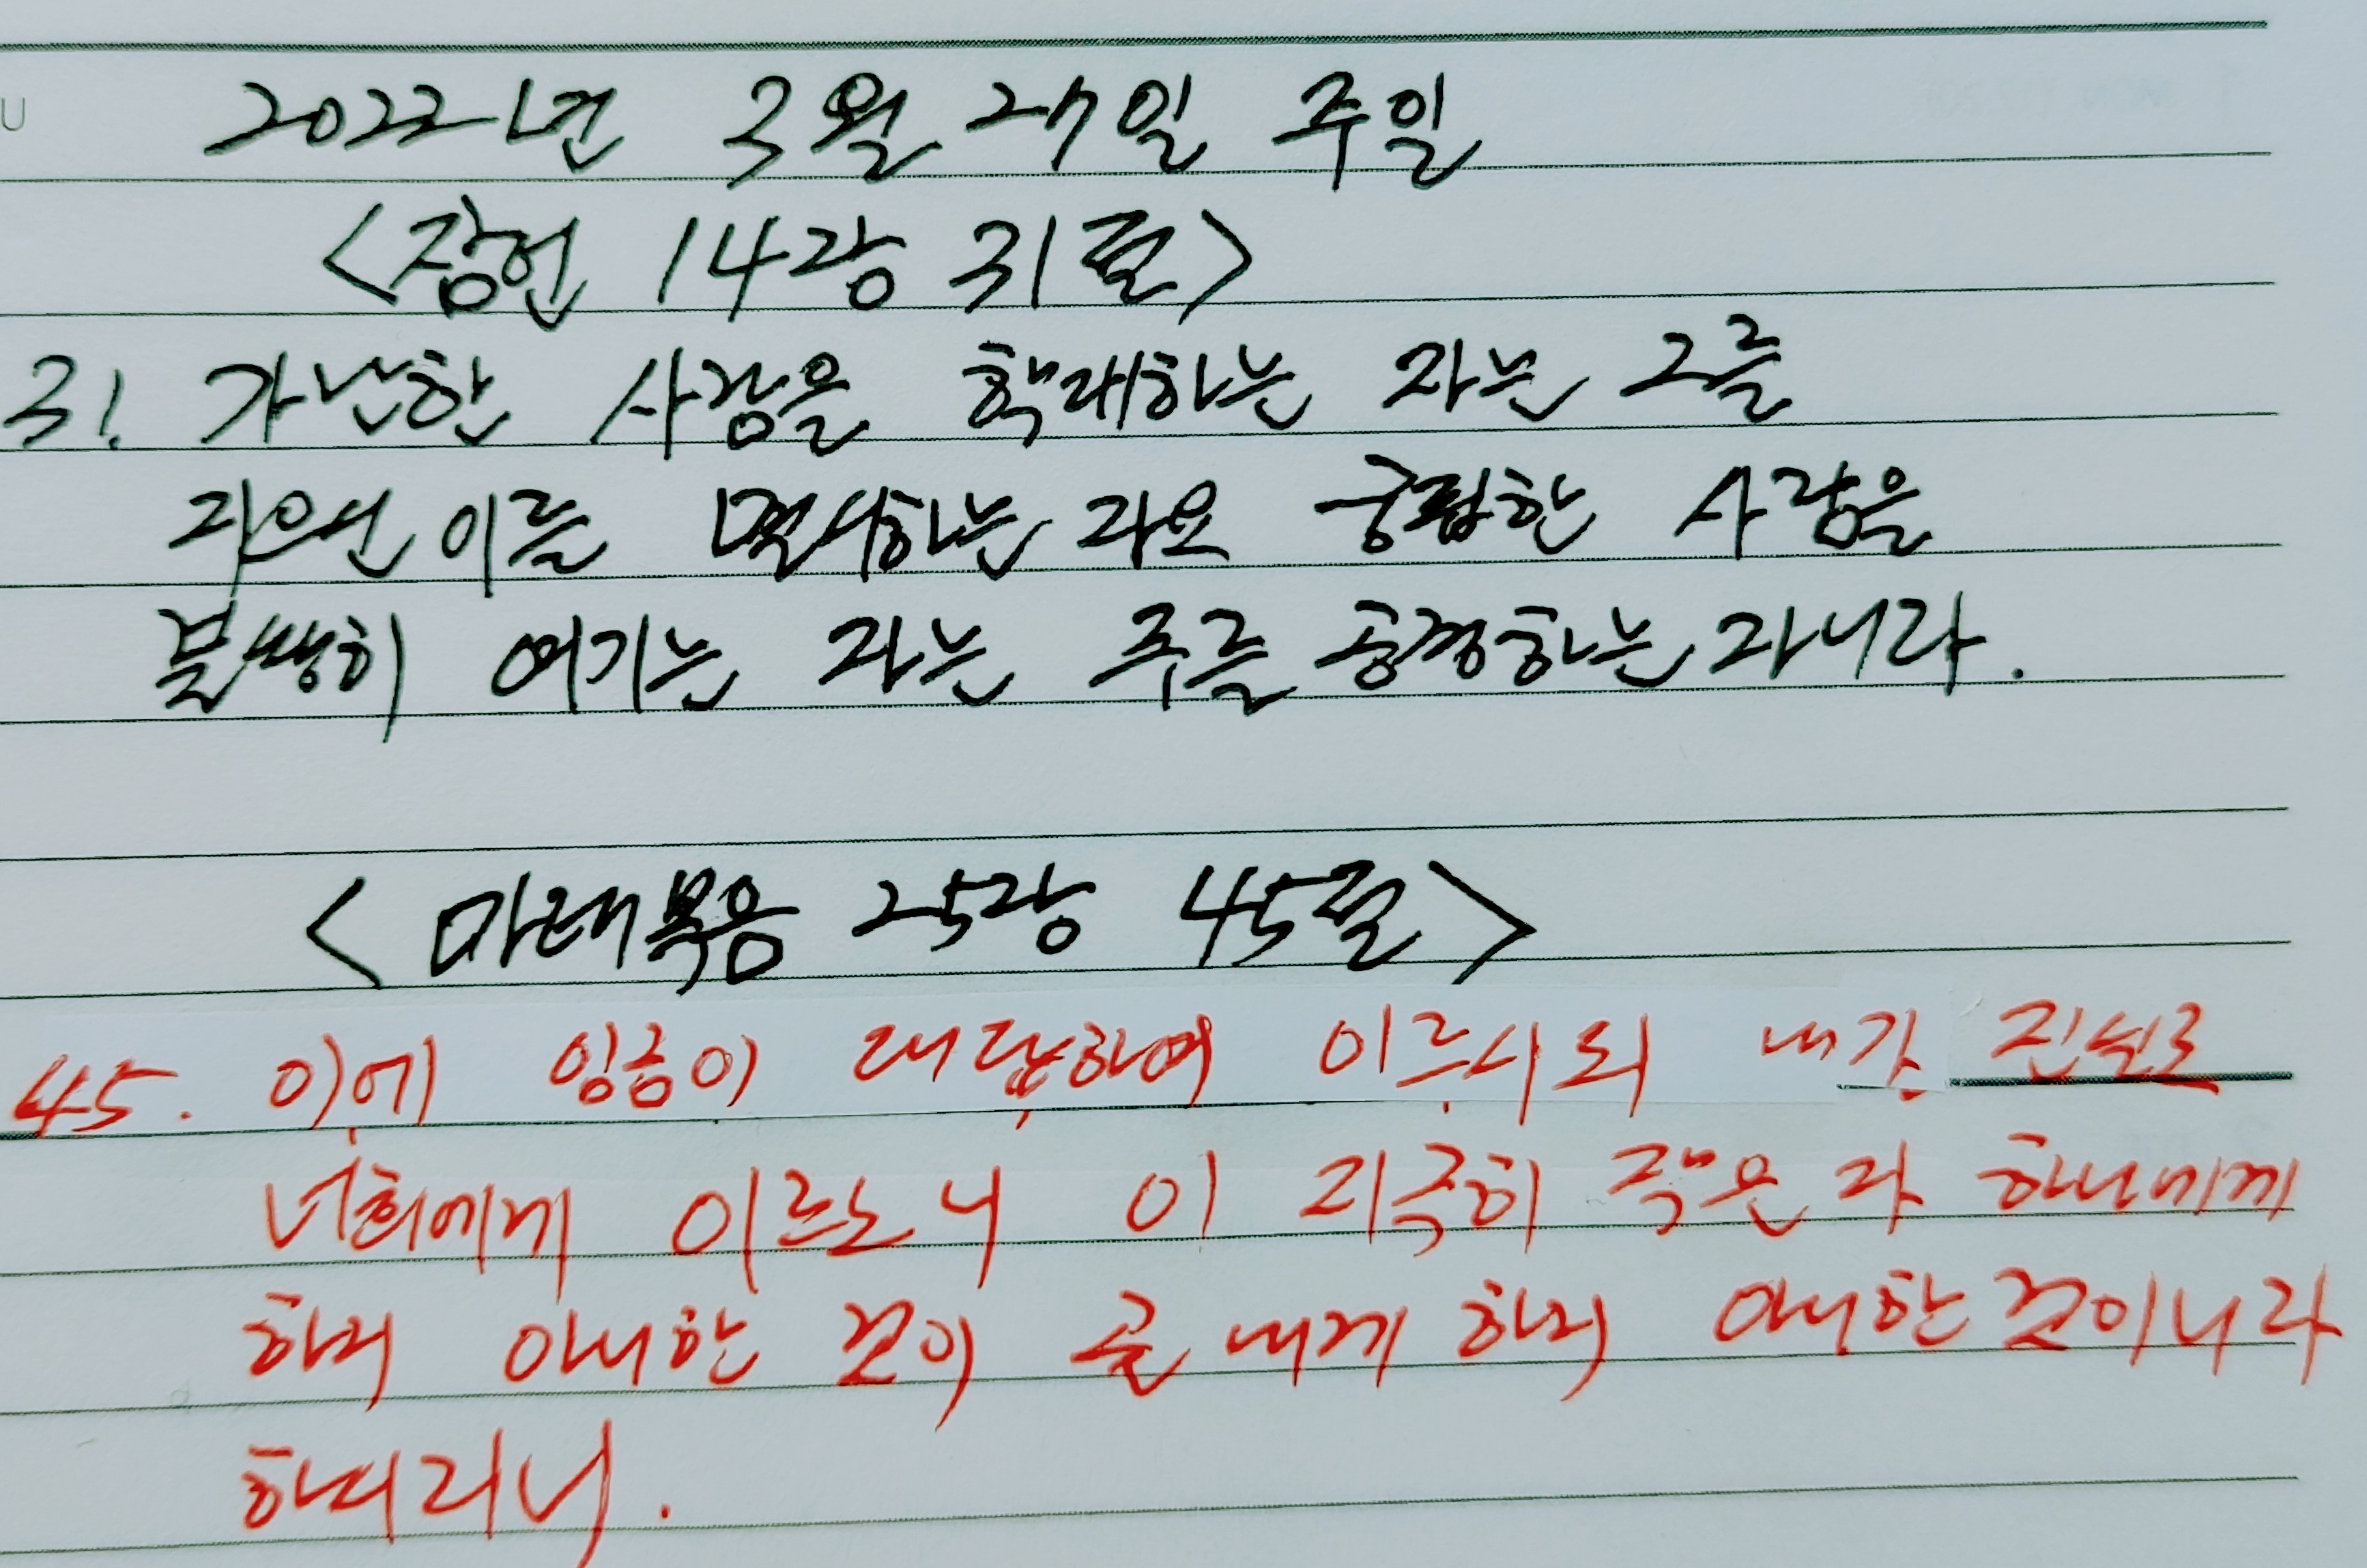 2022년 3월 27일 주일
<잠언 14장 31절>
31. 가난한 사람을 학대하는 자는 그를
지으신 이를 멸시하는 자요 궁핍한 사람을
불쌍히 여기는 자는 주를 공경하는 자니라.
<마태복음 25장 45절>
45. 이에 임금이 대답하여 이르시되 내가 진실로
너희에게 이르노니 이 지극히 작은 자 하나에게
하지 아니한 것이 곧 내게 하지 아니한 것이니라
하시리니.